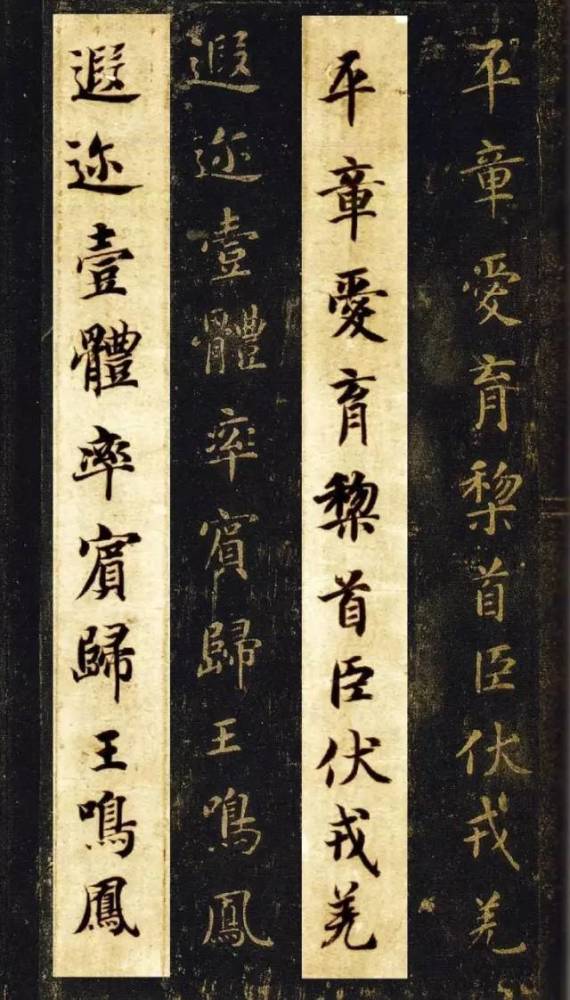 平章愛育棃首臣伏戎羌
平章愛育棃首臣伏戎羌
遐迩壹體率賓歸王鳴鳳
遐迩壹體率賓歸王鳴鳳